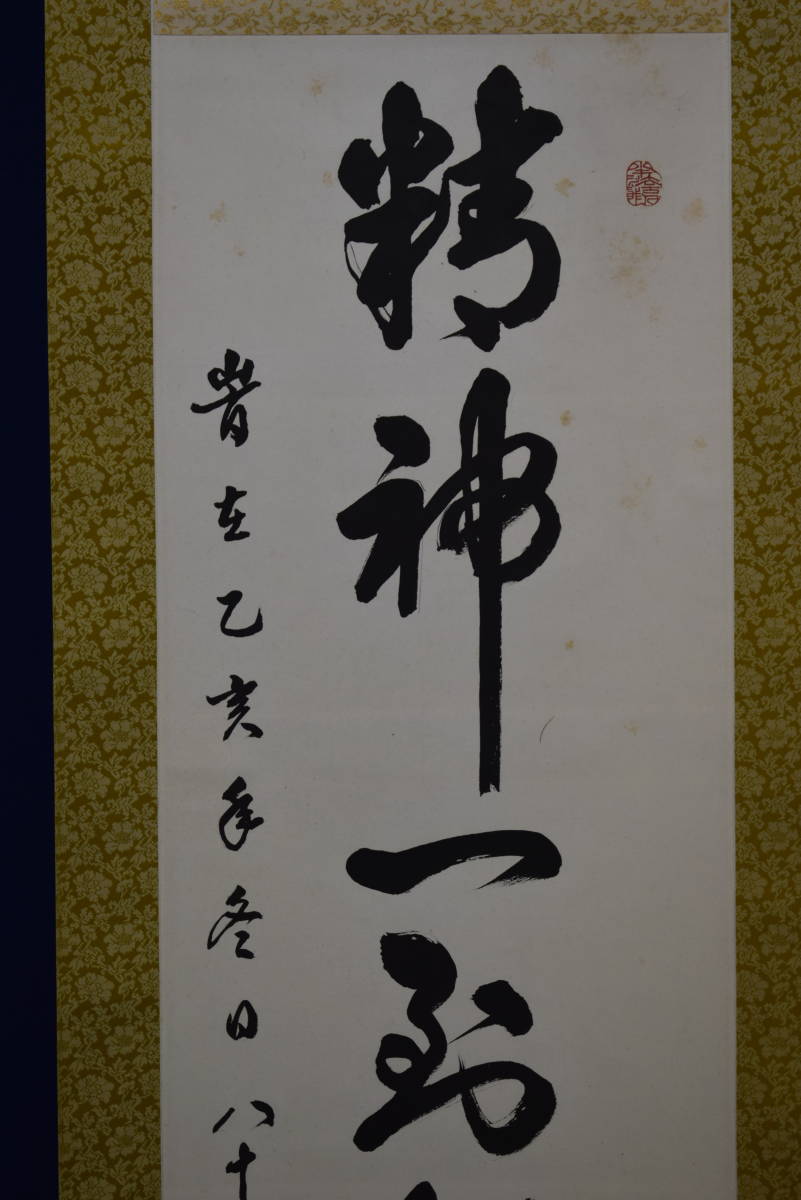 精神一到
旹在乙亥年冬日八十